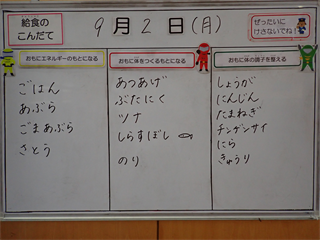 給食の
こんだて
9月2日(月)
ぜったいに
けさないでね!
おもにエネルギーのもとになる
ごはん
あぶら
ごまあぶら
さとう
おもに体をつくるもとになる
あつあげ
ぶたにく
ツナ
しらすぼし
のり
おもに体の調子を整える
しょうが
にんじん
たまねぎ
チンゲンサイ
にら
きゅうり